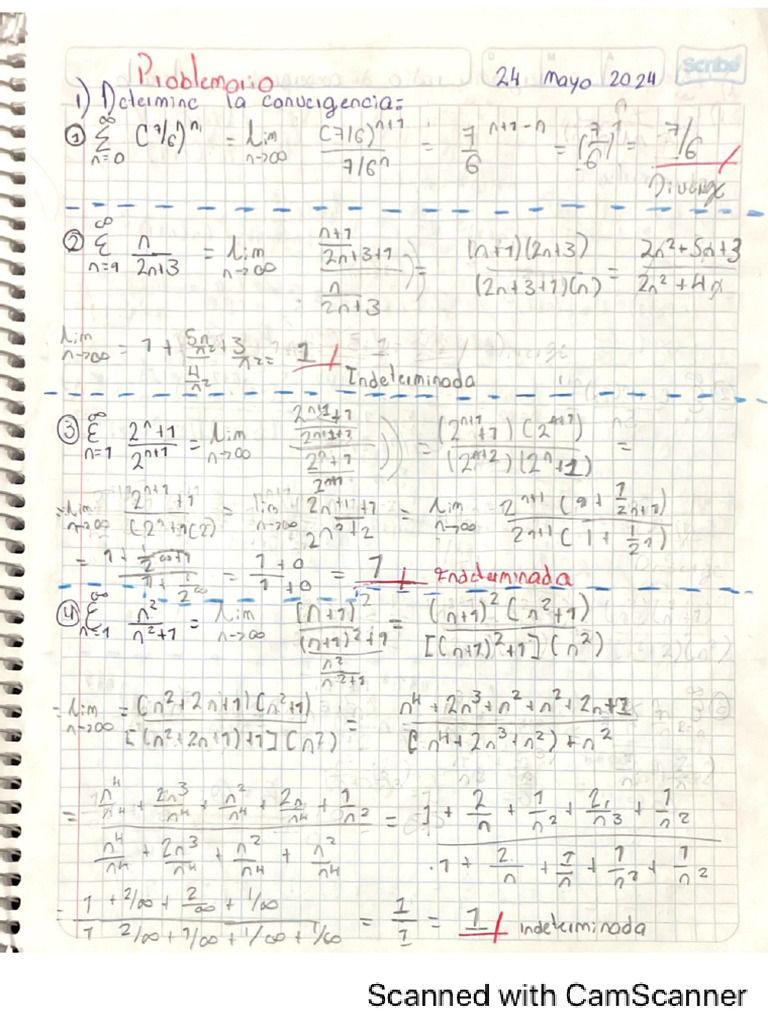 Problemario
24 Mayo 2024
Scribe
1) Determine la convergencia:
① ∞ Σ n=0 (7/6)^n = Lim n→∞ (7/6)^{n+1} / 7/6^n = 7/6 ^{n+1-n} = (7/6)^1 = 7/6
Diverge
② ∞ Σ n=1 n/2n+3 = Lim n→∞ (n+1 / 2n+3+1) / (n / 2n+3) = (n+1)(2n+3) / (2n+3+1)(n) = 2n²+5n+3 / 2n²+4n
Lim n→∞ = 1 + 5n/n² + 3/n² / 4/n² = 1
Indeterminada
③ ∞ Σ n=1 2^n+1 / 2^{n+1} = Lim n→∞ (2^{n+1}+1 / 2^{n+1+1}) / (2^n+1 / 2^{n+1}) = (2^{n+1}+1)(2^{n+1}) / (2^{n+2})(2^n+1) =
= Lim n→∞ 2^{n+1}+1 / (2^n+1)(2) = Lim n→∞ 2^{n+1}+1 / 2^{n+1}+2 = Lim n→∞ 2^{n+1}(1+1/2^{n+1}) / 2^{n+1}(1+1/2^n)
= 1+1/2^{∞+1} / 1+1/2^∞ = 1+0 / 1+0 = 1 Indeterminada
④ ∞ Σ n=1 n²/n²+1 = Lim n→∞ ((n+1)² / (n+1)²+1) / (n² / n²+1) = (n+1)²(n²+1) / [(n+1)²+1](n²)
= Lim n→∞ = (n²+2n+1)(n²+1) / [(n²+2n+1)+1](n²) = n⁴+2n³+n²+n²+2n+1 / (n⁴+2n³+n²)+n²
= n⁴/n⁴ + 2n³/n⁴ + n²/n⁴ + 2n/n⁴ + 1/n² / n⁴/n⁴ + 2n³/n⁴ + n²/n⁴ + n²/n⁴ = 1 + 2/n + 1/n² + 2/n³ + 1/n² / 1 + 2/n + 1/n + 1/n² + 1/n²
= 1 + 2/∞ + 2/∞ + 1/∞ / 1 2/∞ + 1/∞ + 1/∞ + 1/∞ = 1/1 = 1 indeterminada
Scanned with CamScanner